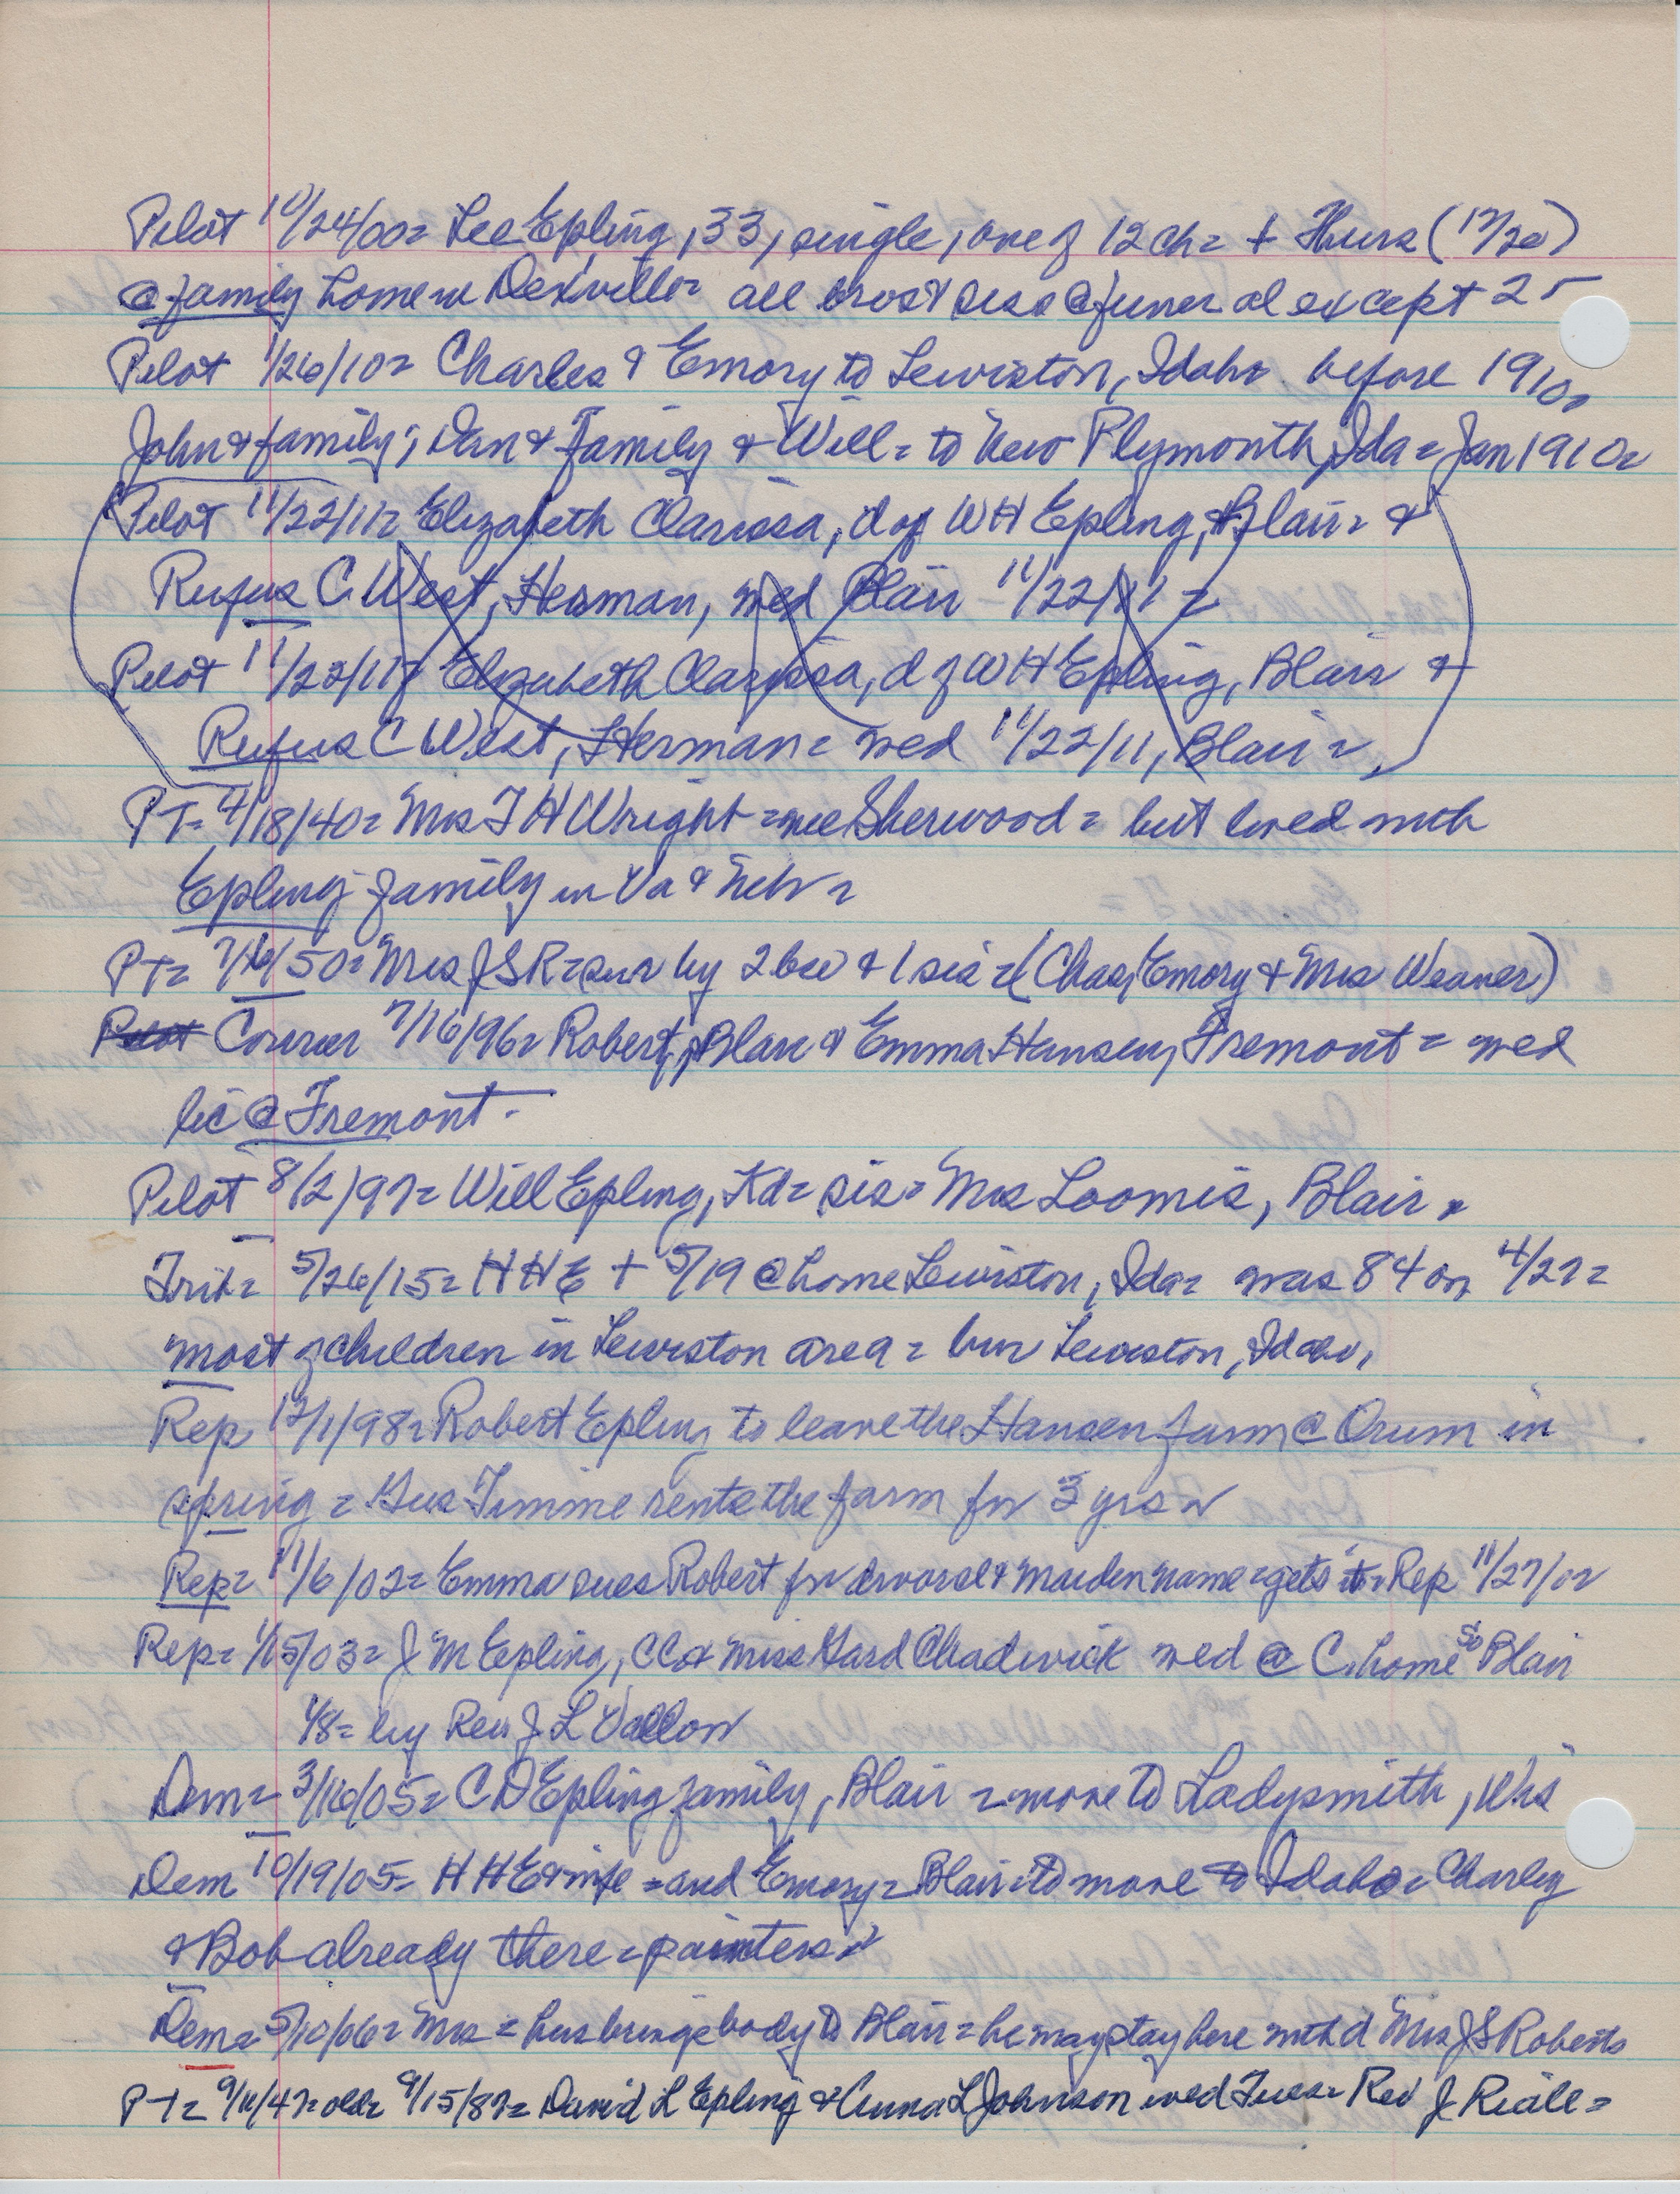 Pilot 10/24/00= Lee Epling, 33, single, one of 12 ch= + Thurs (12/20)
@ family home in Dexville= all bros & siss @ funeral except 2=
Pilot 1/26/10= Charles & Emory to Lewiston, Idaho before 1910,
John & family; Dan & Family & Will= to New Plymouth, Ida= Jan 1910=
Pilot 11/22/11= Elizabeth Clarissa, d of WH Epling, Blair= &
Rufus C. West, Herman, wed Blair - 11/22/11=
Pilot 11/22/11= Elizabeth Clarissa, d of WH Epling, Blair &
Rufus C West, Herman= wed 11/22/11, Blair=
PT= 4/18/40= Mrs T H Wright= nee Sherwood= but lived with
Epling family in Va & Neb=
PT= 7/6/50= Mrs J S R= sur by 2 bro & 1 sis= (Chas, Emory & Mrs Weaver)
Courier 7/16/96= Robert, Blair & Emma Hansen, Fremont= wed
lic @ Fremont.
Pilot 8/2/97= Will Epling, Kd= sis= Mrs Loomis, Blair=
Trib= 5/26/15= H H E + 5/19 @ home Lewiston, Ida= was 84 on 4/27=
most of children in Lewiston area= bur Lewiston, Idaho,
Rep 12/1/98= Robert Epling to leave the Hansen farm @ Orum in
spring= Gus Timme rents the farm for 3 yrs=
Rep= 11/6/02= Emma sues Robert for divorce & maiden name= gets it= Rep 11/27/02
Rep= 1/15/03= J M Epling, CC & Miss Gard Chadwick wed @ C. home So Blair
1/8= by Rev J L Vallow
Dem= 3/16/05= C D Epling family, Blair= move to Ladysmith, Wis
Dem 10/19/05= H H E & wife= and Emory= Blair= to move to Idaho= Charley
& Bob already there= painters=
Dem= 5/10/06= Mrs= hus brings body to Blair= he may stay here with d Mrs J S Roberts
PT= 9/11/47= old= 9/15/87= David L Epling & Anna L Johnson wed Tues= Rev J. Riale=